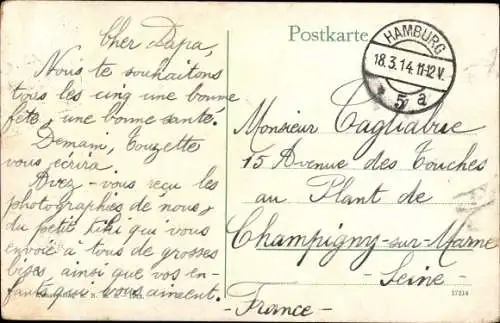 Cher Papa,
Nous te souhaitons
tous les cinq une bonne
fête, une bonne santé.
Demain, Touzette
vous écrira.
Avez-vous reçu les
photographies de nous,
du petit Kiki qui vous
envoie à tous de grosses
bises, ainsi que vos en-
fants qui vous aiment.
Postkarte
HAMBURG
18.3.14.11-12V.
* 5 a
Monsieur Cagliabue
15 Avenue des Touches
au Plant de
Champigny-sur-Marne
- Seine -
- France -
57214